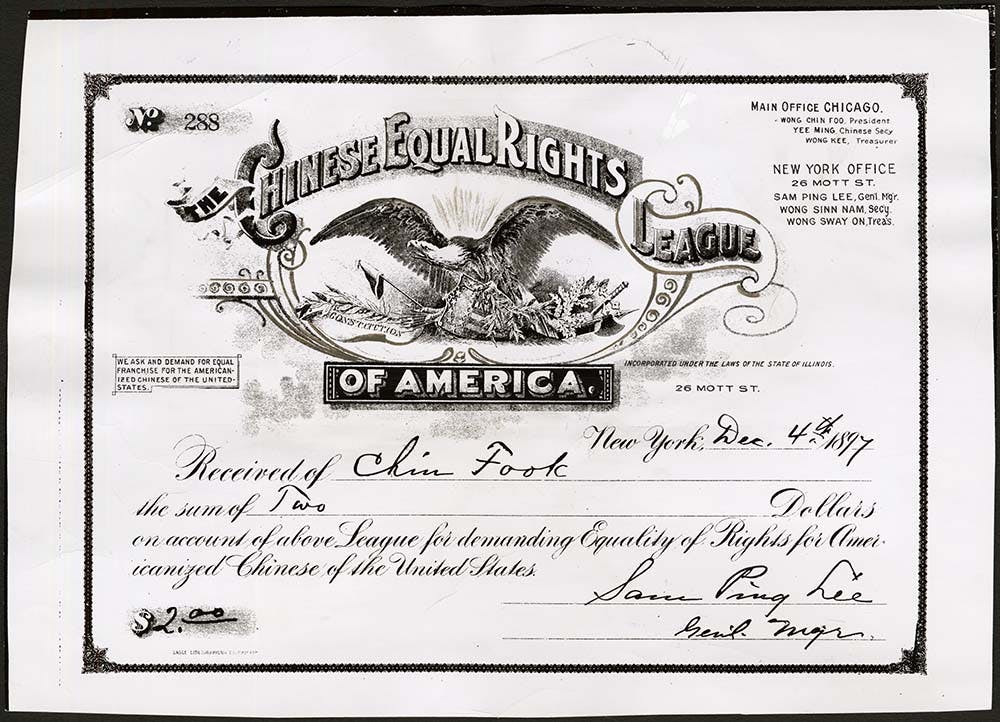 No 288
MAIN OFFICE CHICAGO.
WONG CHIN FOO, President
YEE MING, Chinese Secy
WONG KEE, Treasurer
NEW YORK OFFICE
26 MOTT ST.
SAM PING LEE, Genl. Mgr.
WONG SINN NAM, Secy.
WONG SWAY ON, Treas.
THE CHINESE EQUAL RIGHTS
LEAGUE
CONSTITUTION
OF AMERICA.
WE ASK AND DEMAND FOR EQUAL
FRANCHISE FOR THE AMERICAN-
IZED CHINESE OF THE UNITED-
STATES.
INCORPORATED UNDER THE LAWS OF THE STATE OF ILLINOIS.
26 MOTT ST.
New York, Dec. 4th 1897
Received of Chin Fook
the sum of Two Dollars
on account of above League for demanding Equality of Rights for Amer-
icanized Chinese of the United States.
Sam Ping Lee
$2.00
Genl. Mgr.